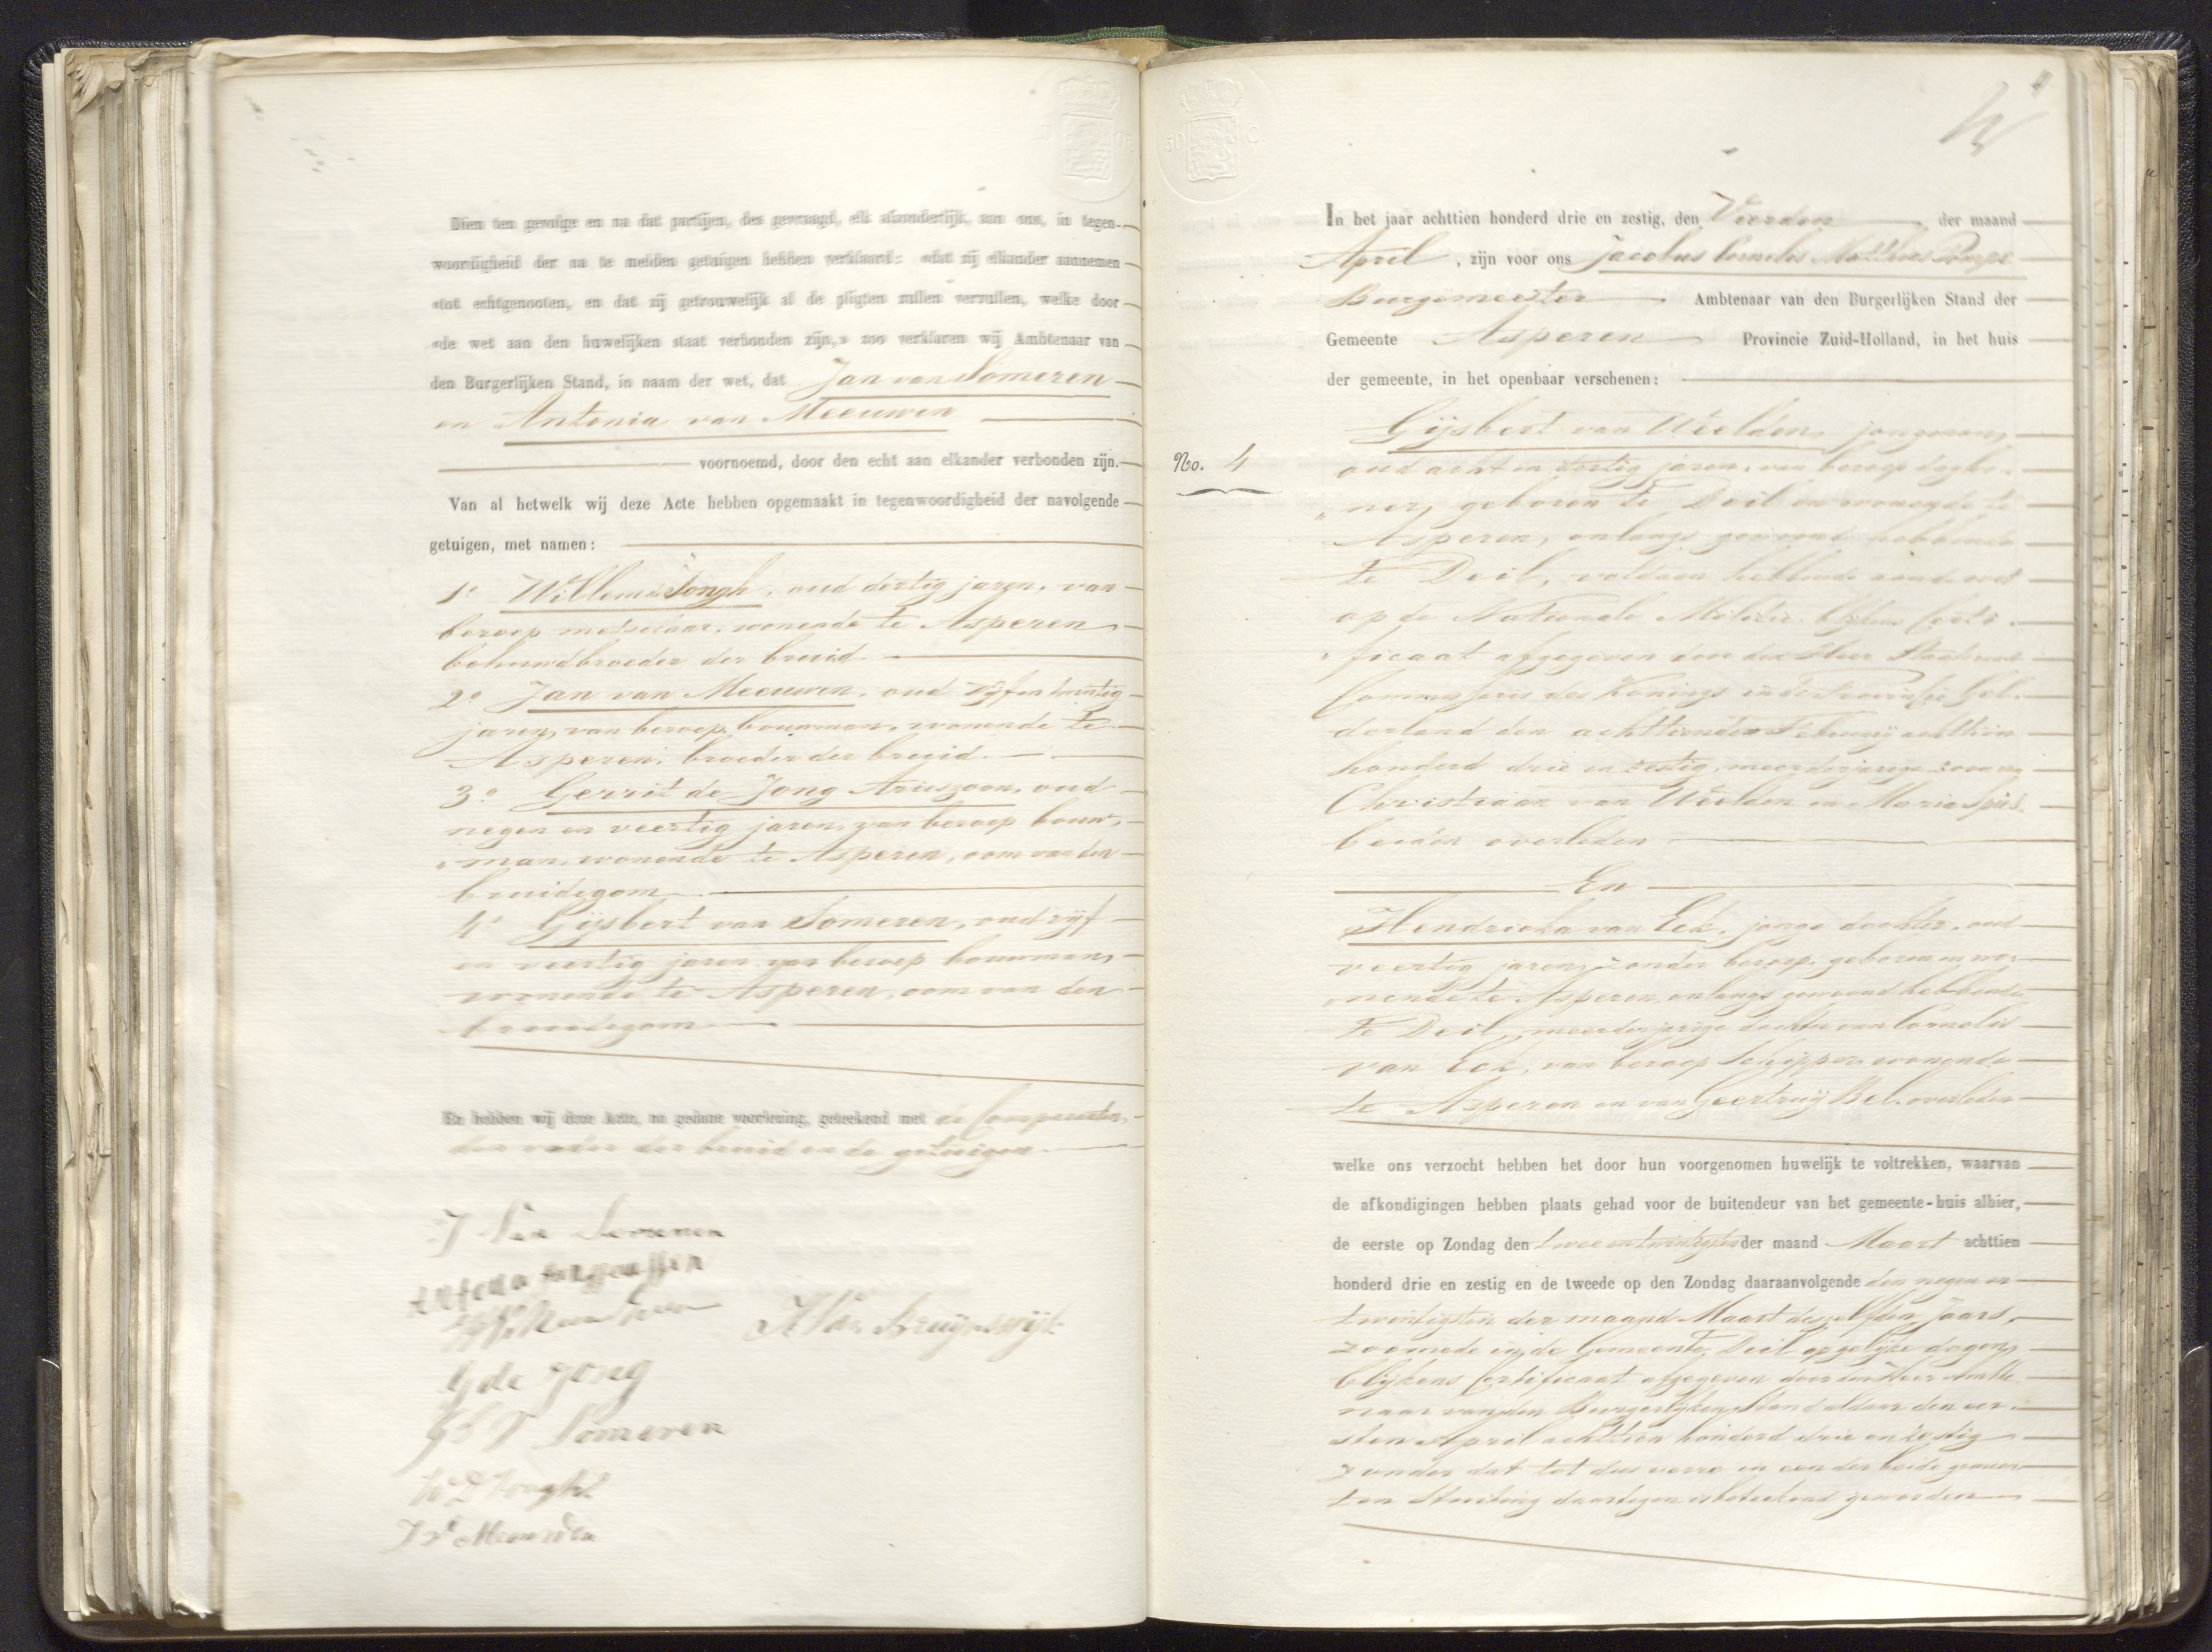 Dien ten gevolge en na dat partijen, des gevraagd, elk afzonderlijk, aan ons, in tegen-
woordigheid der na te melden getuigen hebben verklaard: «dat zij elkander aannemen
«tot echtgenooten, en dat zij getrouwelijk al de pligten zullen vervullen, welke door
«de wet aan den huwelijken staat verbonden zijn,» zoo verklaren wij Ambtenaar van
den Burgerlijken Stand, in naam der wet, dat Jan van Someren
en Antonia van Meeuwen
voornoemd, door den echt aan elkander verbonden zijn.
Van al hetwelk wij deze Acte hebben opgemaakt in tegenwoordigheid der navolgende
getuigen, met namen:
1e Willem de Jongh, oud dertig jaren, van
beroep metselaar, wonende te Asperen
behuwdbroeder der bruid
2e Jan van Meeuwen, oud vijf en twintig
jaren, van beroep bouwman, wonende te
Asperen, broeder der bruid.
3e Gerrit de Jong Arieszoon, oud
negen en veertig jaren, van beroep bouw-
"man, wonende te Asperen, oom van den
bruidegom
4e Gijsbert van Someren, oud vijf
en veertig jaren van beroep bouwman,
wonende te Asperen, oom van den
bruidegom
En hebben wij deze Acte, na gedane voorlezing, geteekend met de Comparanten,
den vader der bruid en de getuigen.
J Van Someren
G de Jong
Gb V Someren
W D Jongh
J V Meeuwen
In het jaar achttien honderd drie en zestig, den Vierden der maand
April, zijn voor ons Jacobus Cornelis Mattheus Pompe
Burgemeester Ambtenaar van den Burgerlijken Stand der
Gemeente Asperen Provincie Zuid-Holland, in het huis
der gemeente, in het openbaar verschenen:
No. 4
Gijsbert van Weelden, jongman,
oud acht en dertig jaren, van beroep dagloo-
"ner, geboren te Deil en wonende te
Asperen, onlangs gewoond hebbende
te Deil, voldaan hebbende aan de wet
op de Nationale Militie blijkens Certi-
"ficaat afgegeven door den Heer Staatsraad
Commissaris des Konings in de Provincie Gel-
derland den achttienden Februarij achttien
honderd drie en zestig, meerderjarige zoon van
Christiaan van Weelden en Maria Spies.
beiden overleden
En
Hendricka van Eck, jonge dochter, oud
veertig jaren, zonder beroep, geboren en wo-
"nende te Asperen, onlangs gewoond hebbende
te Deil, meerderjarige dochter van Cornelis
van Eck, van beroep Schipper wonende
te Asperen en van Geertruij Bel. overleden
welke ons verzocht hebben het door hun voorgenomen huwelijk te voltrekken, waarvan
de afkondigingen hebben plaats gehad voor de buitendeur van het gemeente-huis alhier,
de eerste op Zondag den twee en twintigsten der maand Maart achttien
honderd drie en zestig en de tweede op den Zondag daaraanvolgende den negen en
twintigsten der maand Maart deszelfden jaars,
zoomede in de Gemeente Deil op gelijke dagen,
blijkens Certificaat afgegeven door den Heer Ambte
naar van den Burgerlijken Stand aldaar den eer-
sten April achttien honderd drie en zestig
zonder dat tot dus verre in een der beide gemeen
ten stuiting daartegen is beteekend geworden